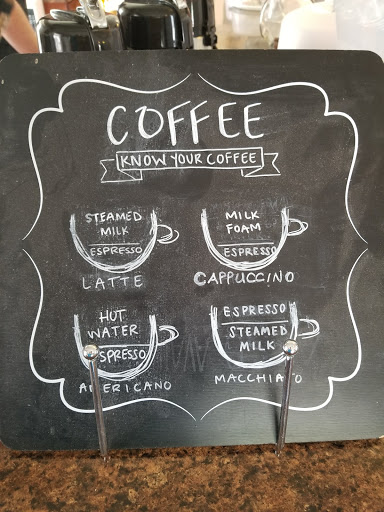 COFFEE
KNOW YOUR COFFEE
STEAMED
MILK
ESPRESSO
LATTE
MILK
FOAM
ESPRESSO
CAPPUCCINO
HOT
WATER
ESPRESSO
AMERICANO
ESPRESSO
STEAMED
MILK
MACCHIATO